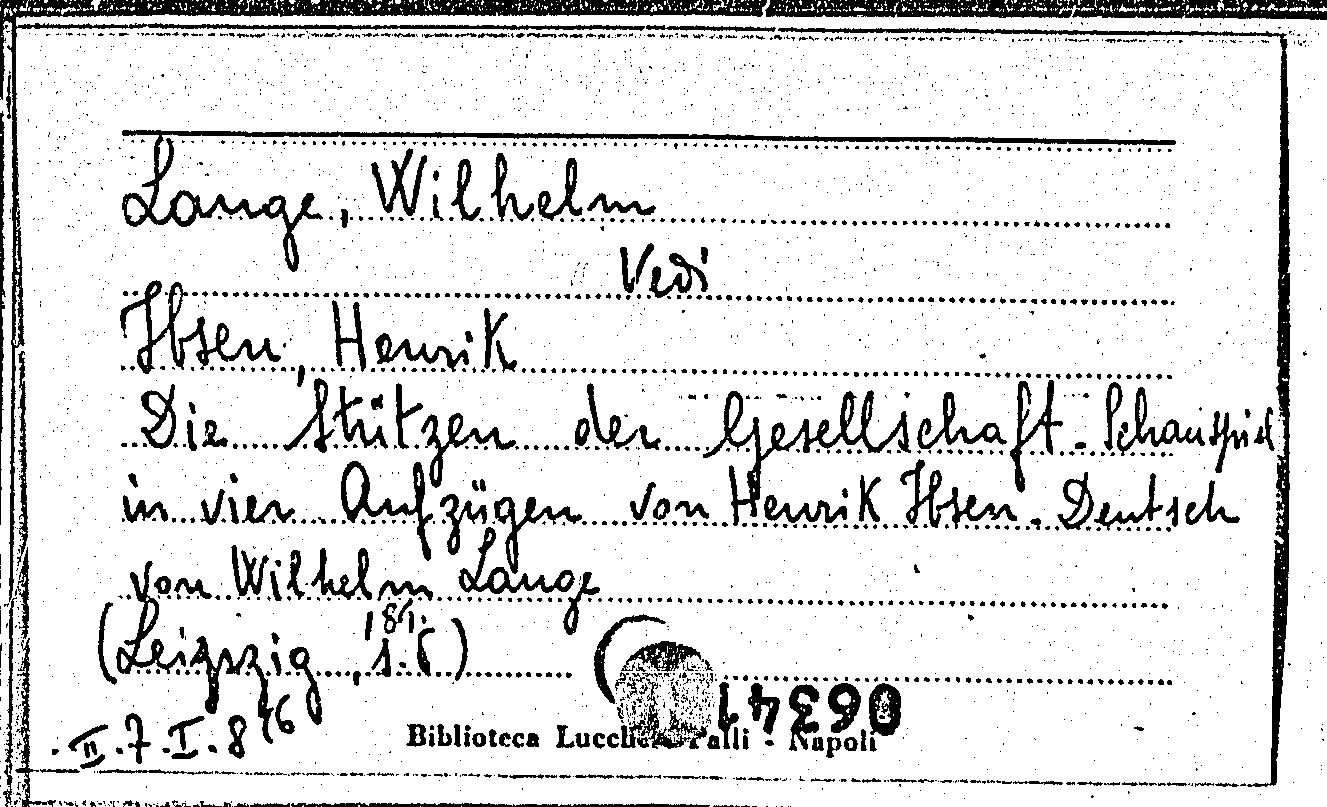 Lange, Wilhelm
Vedi
Ibsen, Henrik
Die Stützen der Gesellschaft. Schauspiel
in vier Aufzügen von Henrik Ibsen. Deutsch
von Wilhelm Lange
(Leipzig, s.
II.7.I.8
06341
Biblioteca Lucchesi Palli - Napoli